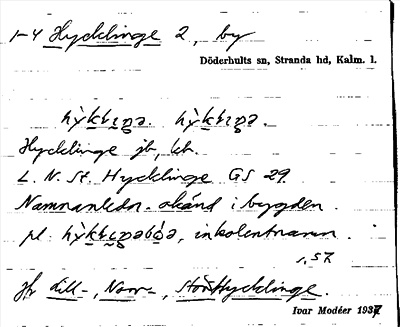 1-4 Hycklinge 2, by
Döderhults sn, Stranda hd, Kalm. l.
Hycklinge jb, kb.
L. N. St. Hycklinge GS 29.
Namnanledn. okänd i bygden.
pl. inkolentnamn.
s. 57
Jfr Lill-, Norr-, Storhycklinge.
Ivar Modéer 1937